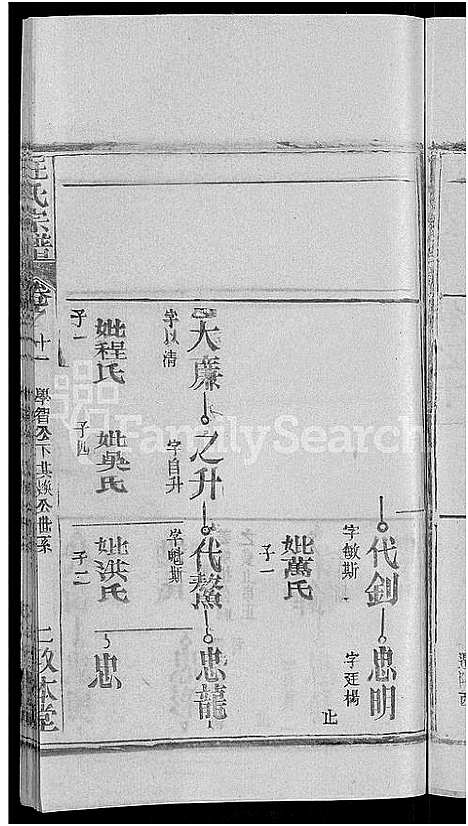 代釗
字敏斯
忠明
字廷楊
止
妣萬氏
子一
大廉
字以清
之升
字自升
代鰲
字魁斯
忠龍
妣程氏
子一
妣吳氏
子四
妣洪氏
子二
忠
氏宗譜
卷
十一
學智公下其煥公世系
一本堂
FamilySearch